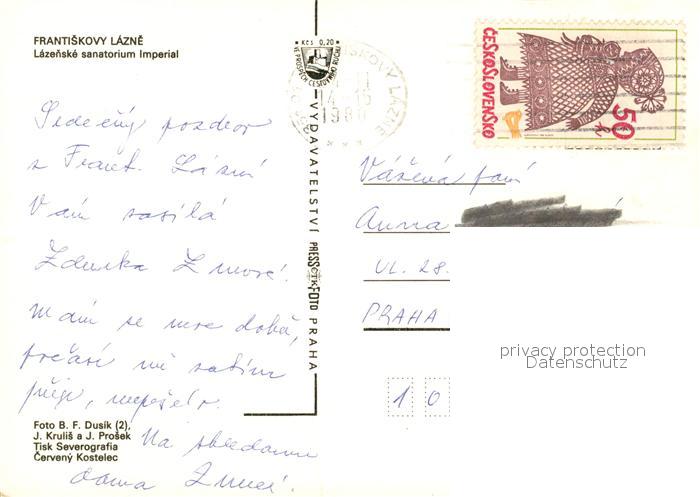 FRANTIŠKOVY LÁZNĚ
Lázeňské sanatorium Imperial
Srdečný pozdrav
z Frant. Lázní
Vám zasílá
Zdenka
Mám se moc dobře,
počasí mi zatím
přeje,
Na shledanou
doma
Foto B. F. Dusík (2),
J. Kruliš a J. Prošek
Tisk Severografia
Červený Kostelec
VYDAVATELSTVÍ PRESSFOTO PRAHA
Kčs 0,20
VE PROSPĚCH CESTOVNÍHO RUCHU
LÁZNĚ
ČESKOSLOVENSKO
50 h
Vážená paní
Anna
UL. 28.
PRAHA
10
privacy protection
Datenschutz